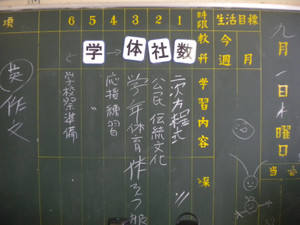 九月一日水曜日
生活目標
今週
月
時限
教科
学習内容
1
数
二次方程式
2
社
公民 伝統文化
3
体
学年体育
4
→
応指練習
5
学
6
←
学校祭準備
項
英作文